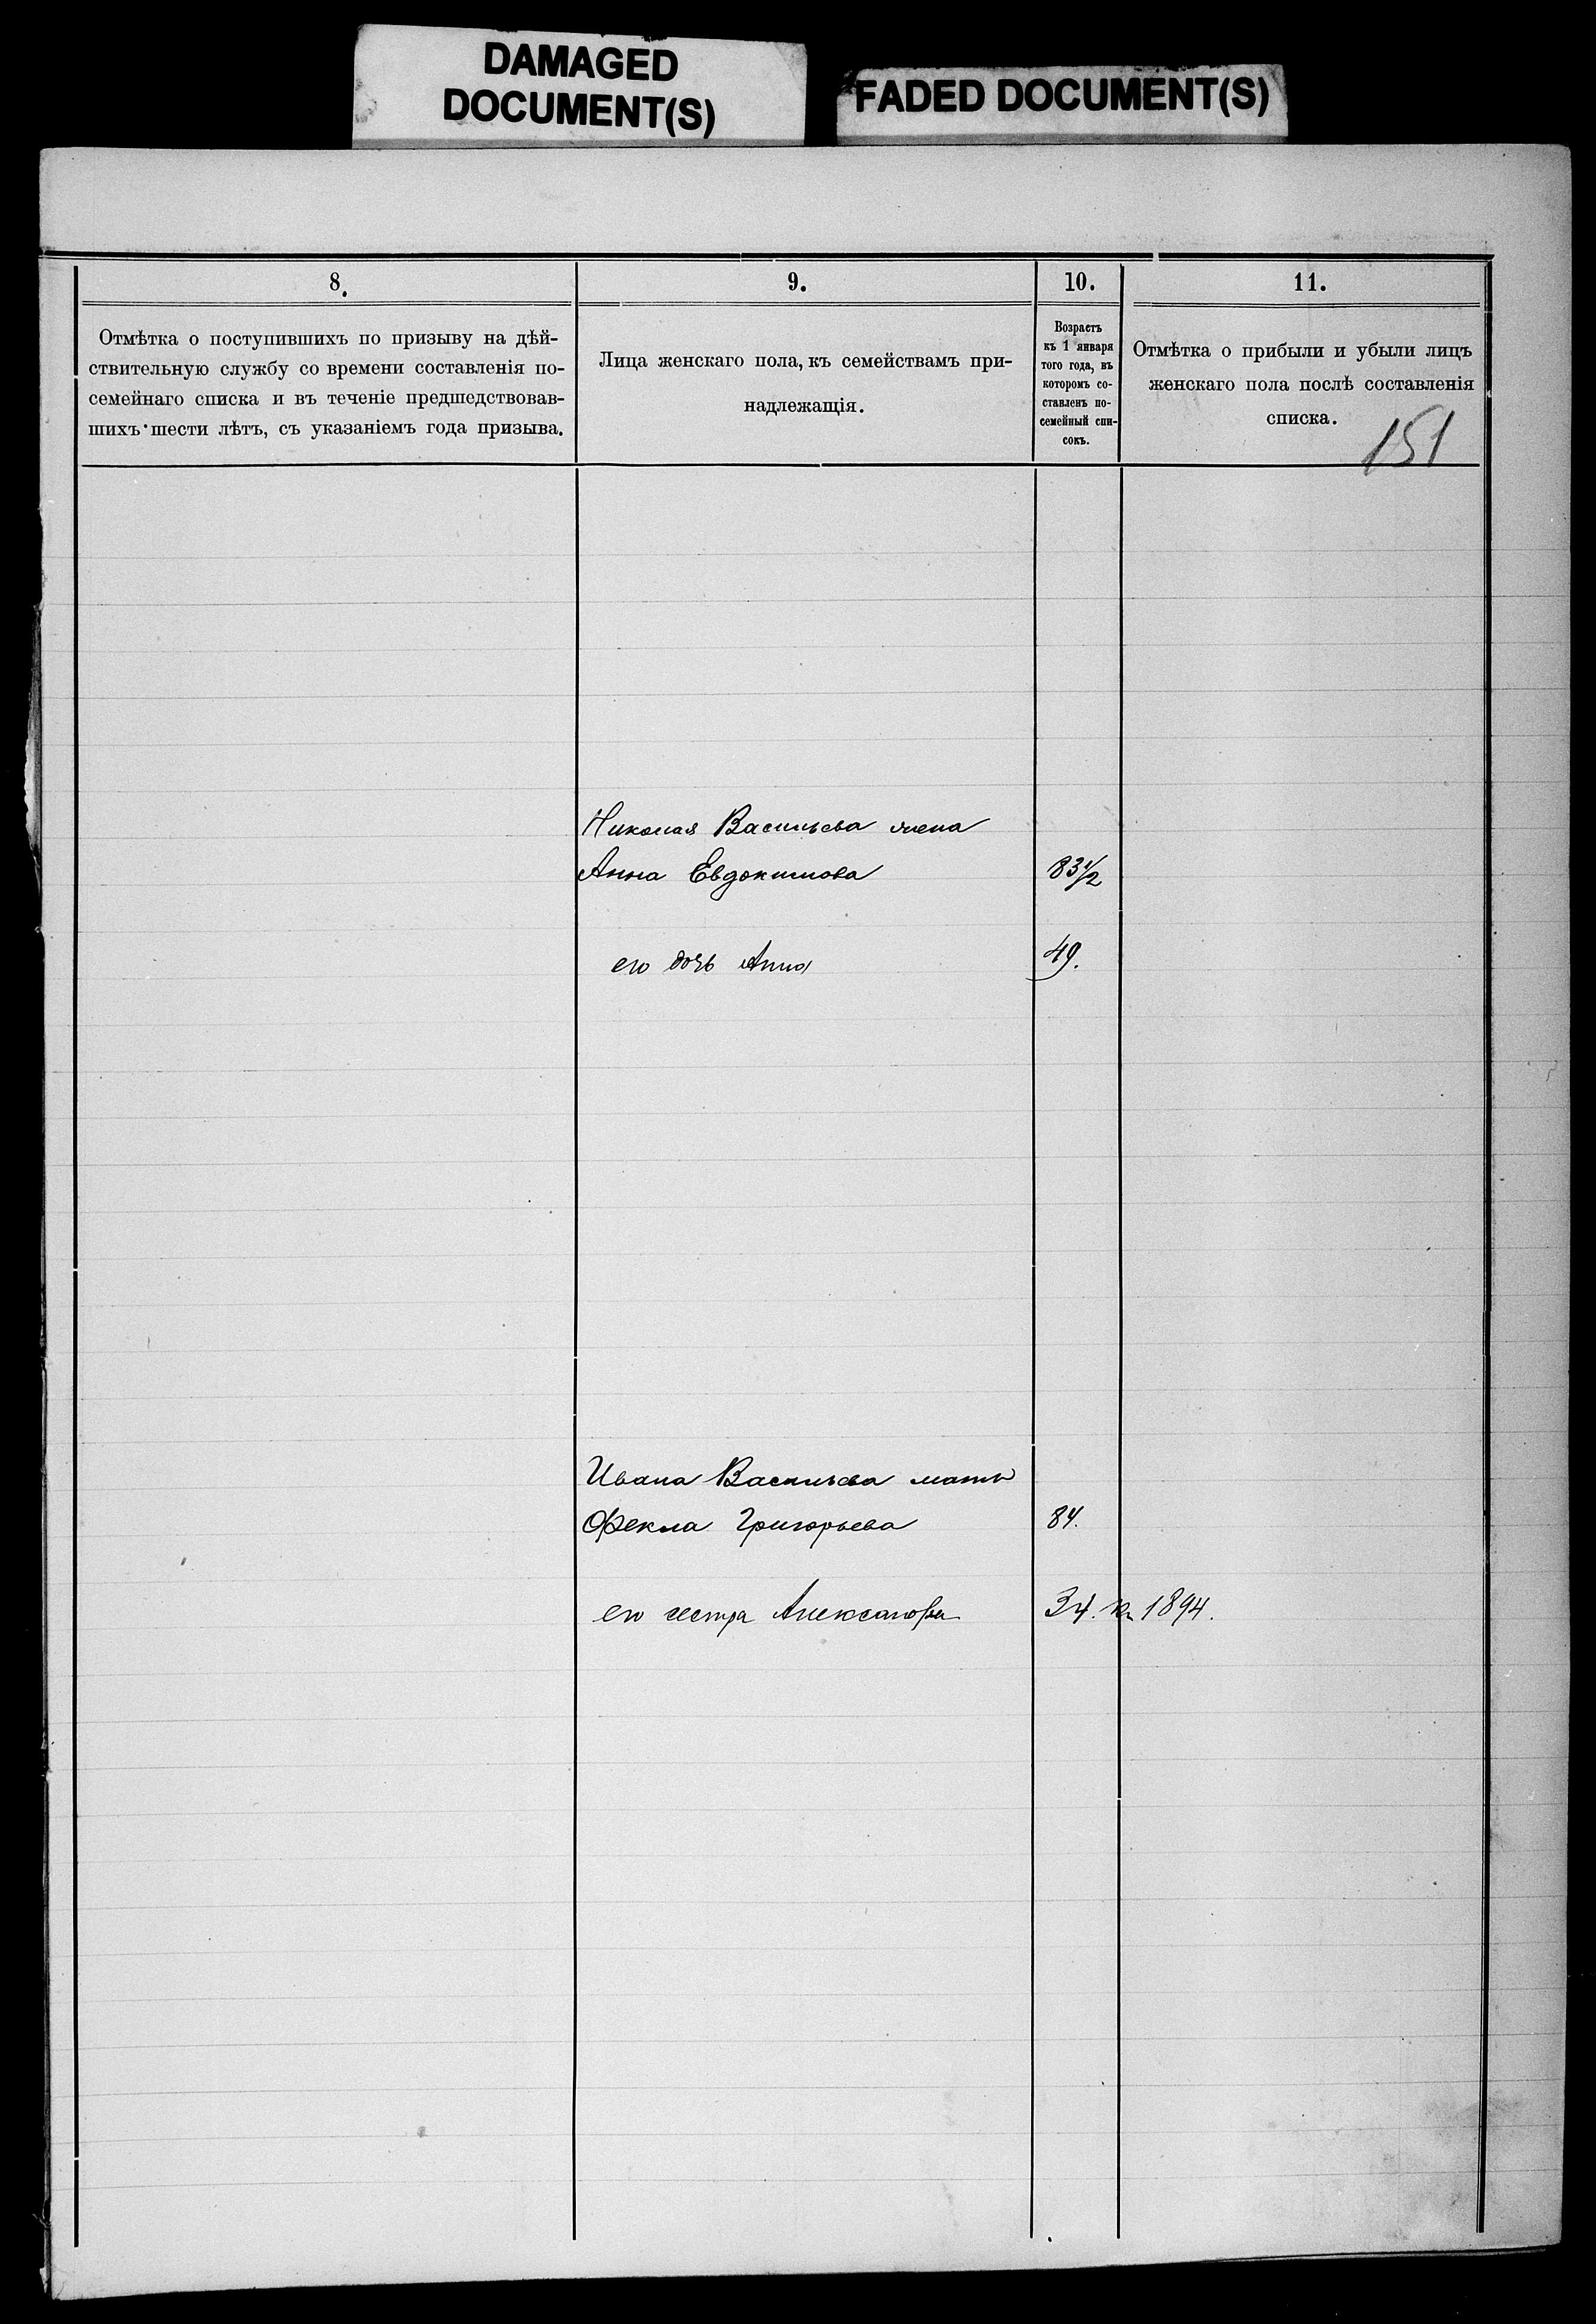 DAMAGED
DOCUMENT(S)
FADED DOCUMENT(S)
8.
Отмѣтка о поступившихъ по призыву на дѣй-
ствительную службу со времени составленія по-
семейнаго списка и въ теченіе предшедствовав-
шихъ шести лѣтъ, съ указаніемъ года призыва.
9.
Лица женскаго пола, къ семействамъ при-
надлежащія.
10.
Возрастъ
къ 1 января
того года, въ
которомъ со-
ставленъ по-
семейный спи-
сокъ.
11.
Отмѣтка о прибыли и убыли лицъ
женскаго пола послѣ составленія
списка.
151
Николая Васильева жена
Анна Евдокимова 83 1/2
его дочь Анна 49.
Ивана Васильева мать
Фекла Григорьева 84.
его сестра Александра 34. 1894.